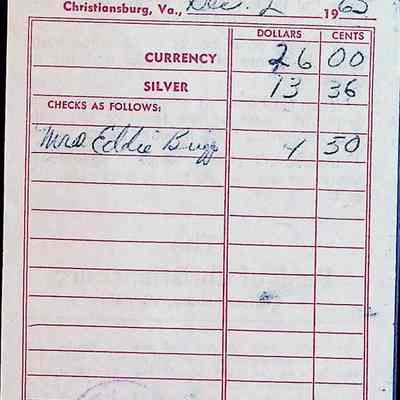 Christiansburg, Va., Dec. 2 1965
DOLLARS CENTS
CURRENCY 26 00
SILVER 13 36
CHECKS AS FOLLOWS:
Mrs. Eddie 4 50